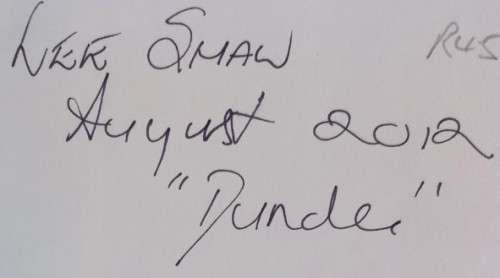 LEE SHAW R45
August 2012
"Dundee"